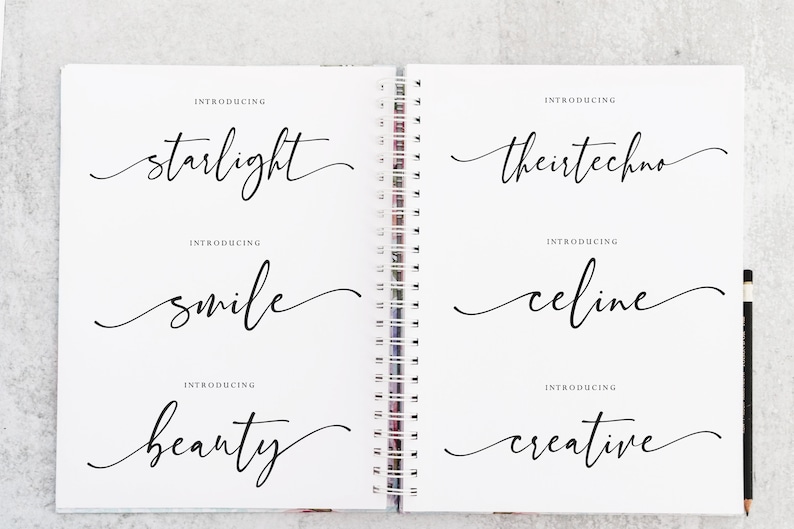 INTRODUCING
starlight
INTRODUCING
smile
INTRODUCING
beauty
INTRODUCING
theirtechno
INTRODUCING
celine
INTRODUCING
creative